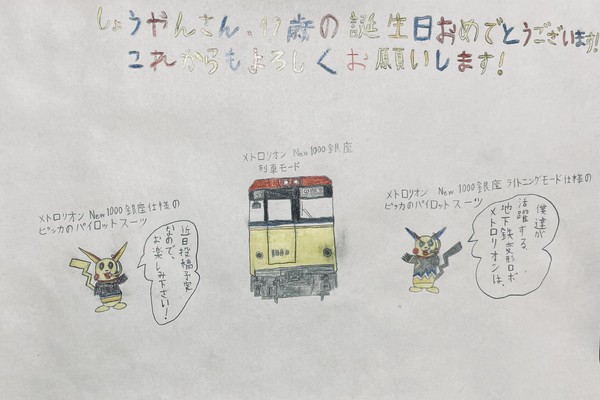 しょうやんさん、19歳の誕生日おめでとうございます!
これからもよろしくお願いします!
メトロリオン New1000銀座
列車モード
メトロリオン New1000銀座仕様の
ピッカのパイロットスーツ
近日投稿予定
なので、
お楽しみ下さい!
メトロリオン New1000銀座 ライトニングモード仕様の
ピッカのパイロットスーツ
僕達が
活躍する、
地下鉄変形ロボ
メトロリオンは、